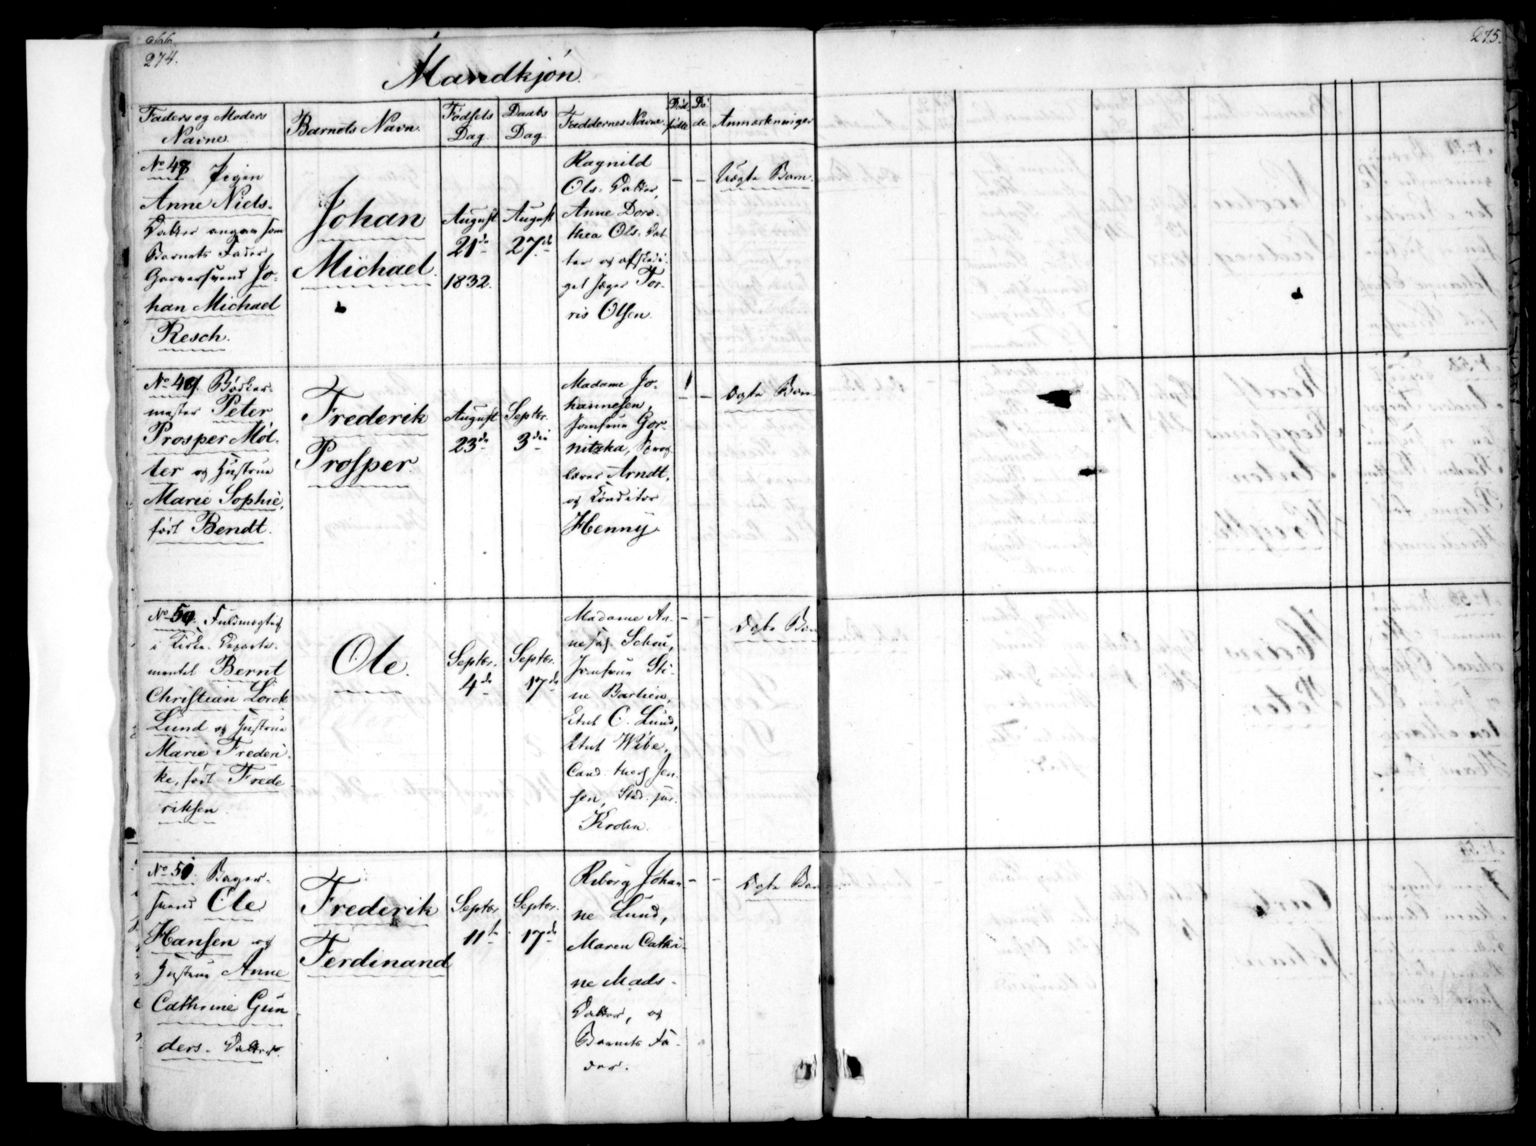 274.
275.
Mandkjön.
Faders og Moders
Navne.
Barnets Navn.
Födsels
Dag.
Daabs
Dag.
Faddernes Navne.
Död
födte
Dö
de
Anmærkninger
No 48 Pigen
Anne Niels-
Datter angav som
Barnets Fader
Garversvend Jo-
han Michael
Resch.
Johan
Michael.
August
21de
1832.
August
27de
Ragnild
Ols. Datter,
Anne Doro-
thea Ols. Dat-
ter og afskedi-
get Jæger Tor-
ris Olsen.
– –
Uægte Barn.
No 49. Bösker-
mester Peter
Prosper Möl-
ler og Hustrue
Marie Sophie,
föd Bendt.
Frederik
Prosper.
August
23de
Septbr.
3die
Madame Jo-
hannesen,
Jomfrue Gor-
nitzka,
Arndt,
og Conditor
Henny.
1 –
Ægte Barn
No 50. Fuldmægtig
i Kirke Departe-
mentet Bernt
Christian Lorck
Lund og Hustrue
Marie Frederi-
ke, föd Frede-
riksen.
Ole.
Septbr.
4de
Septbr.
17de
Madame An-
Schou,
Jomfrue Sti-
ne Barlien,
Stud. C. Lund,
Stud. Wibe,
Cand. theol. Jen-
sen, Stud. jur.
Krohn.
– –
Ægte Barn
No 51. Bager-
svend Ole
Hansen og
Hustrue Anne
Cathrine Gun-
ders. Datter.
Frederik
Ferdinand
Septbr.
11te
Septbr.
17de
Riborg Johan-
ne Lund,
Maren Cathri-
ne Mads-
Datter, og
Barnets Fa-
der.
– –
Ægte Barn